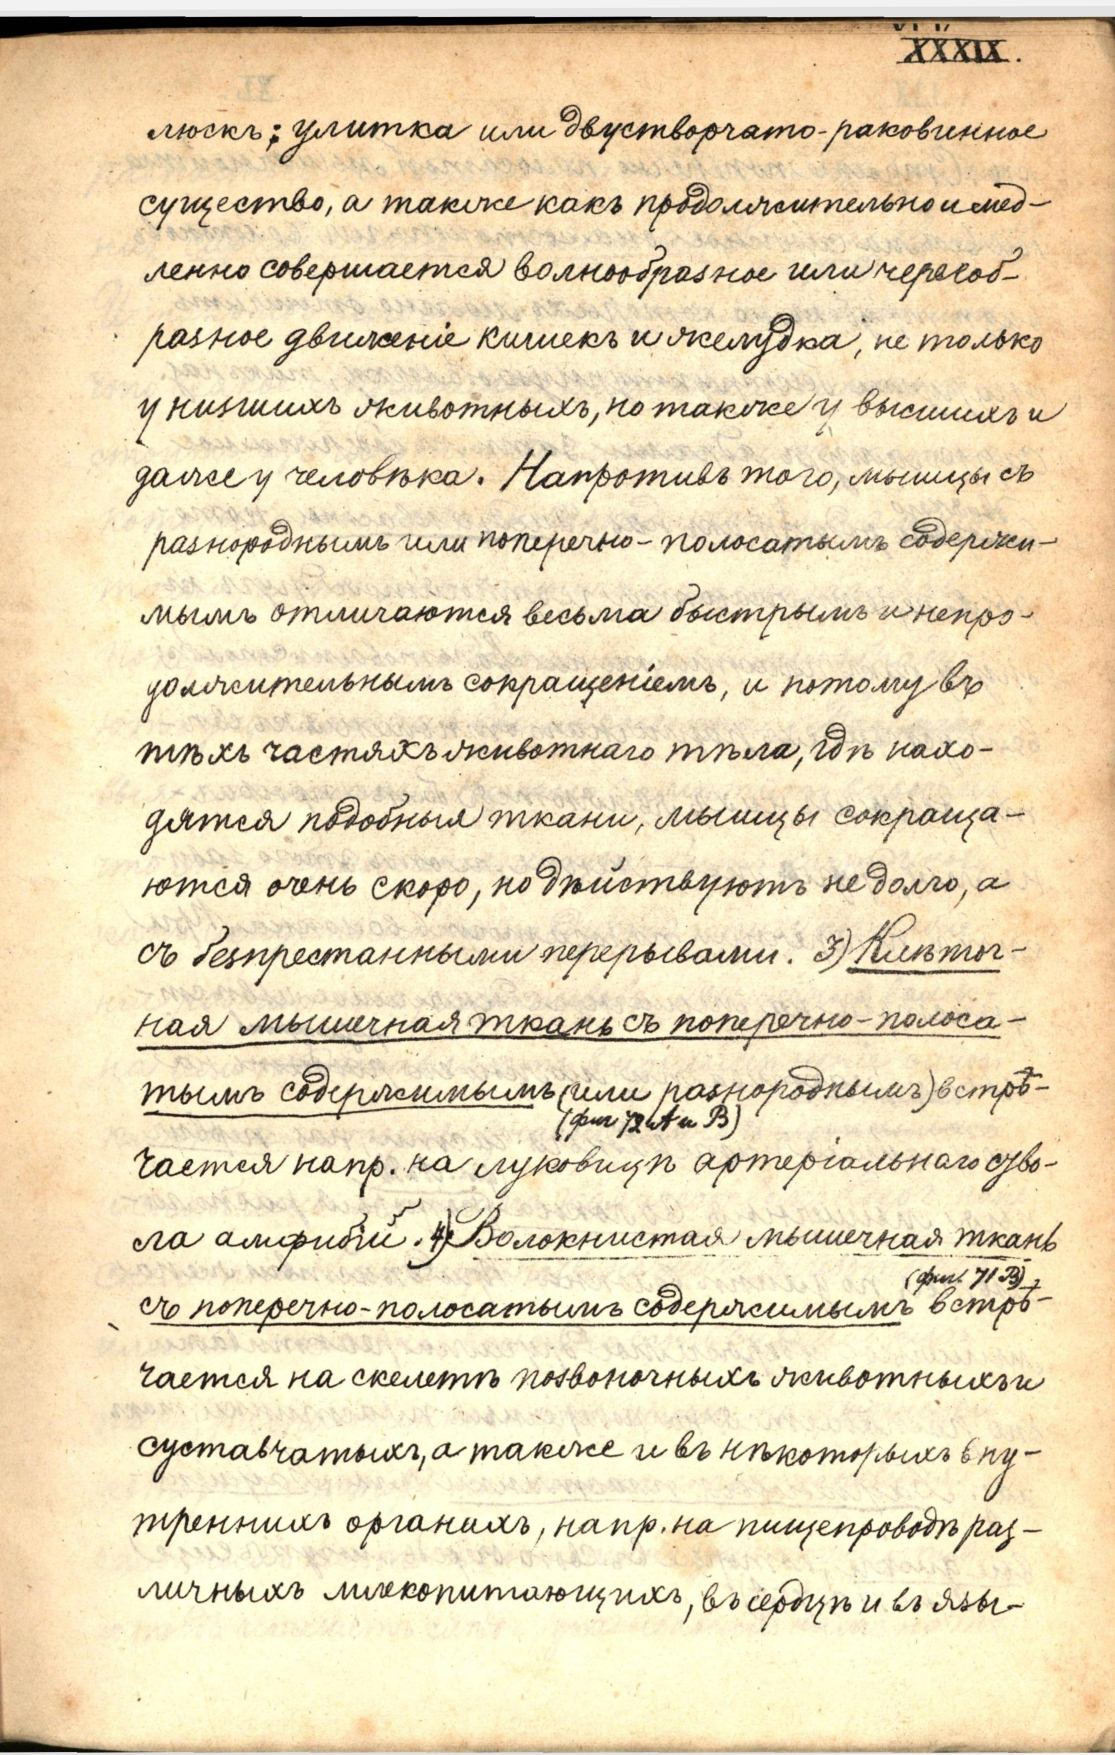 XXXIX.
люскъ; улитка или двустворчато-раковинное
существо, а также какъ продолжительно и мед-
ленно совершается волнообразное или червеоб-
разное движеніе кишекъ и желудка, не только
у низшихъ животныхъ, но также у высшихъ и
даже у человѣка. Напротивъ того, мышцы съ
разнороднымъ или поперечно-полосатымъ содержи-
мымъ отличаются весьма быстрымъ и непро-
должительнымъ сокращеніемъ, и потому въ
тѣхъ частяхъ животнаго тѣла, гдѣ нахо-
дятся подобныя ткани, мышцы сокраща-
ются очень скоро, но дѣйствуютъ не долго, а
съ безпрестанными перерывами. 3) Клѣточ-
ная мышечная ткань съ поперечно-полоса-
тымъ содержимымъ (или разнороднымъ) встрѣ-
(фиг 72 А и В)
чается напр. на луковицѣ артеріальнаго ство-
ла амфибій. 4) Волокнистая мышечная ткань
(фиг. 71 В)
съ поперечно-полосатымъ содержимымъ встрѣ-
чается на скелетѣ позвоночныхъ животныхъ и
суставчатыхъ, а также и въ нѣкоторыхъ вну-
треннихъ органахъ, напр. на пищепроводѣ раз-
личныхъ млекопитающихъ, въ сердцѣ и въ язы-